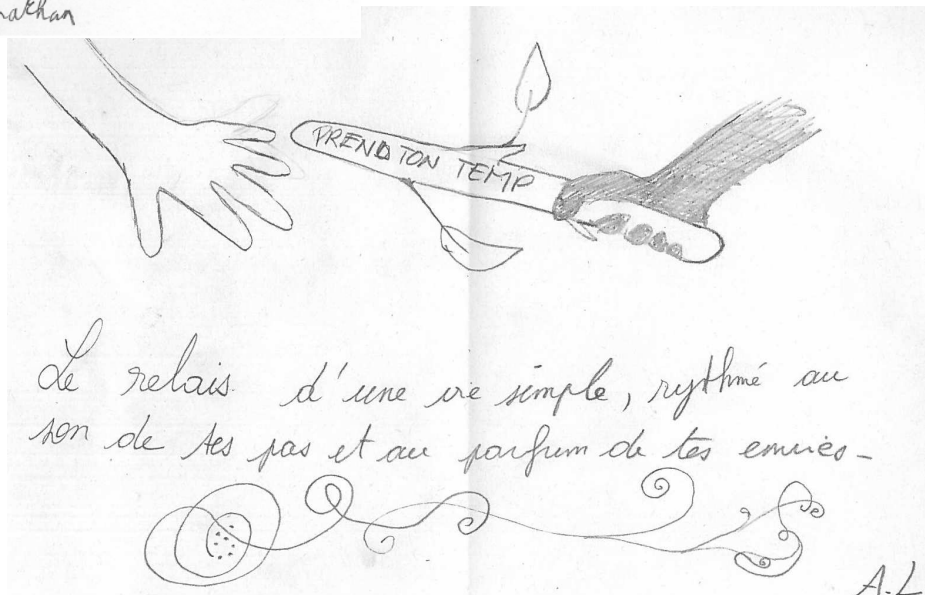 PREND TON TEMP
Le relais d'une vie simple, rythmé au
son de tes pas et au parfum de tes envies -
A.L